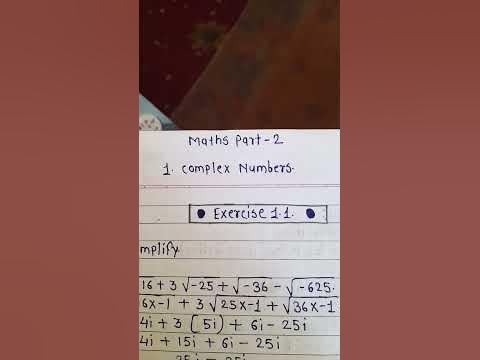 Maths Part-2
1. Complex Numbers.
• Exercise 1.1. •
mplify
16 + 3 √-25 + √-36 - √-625.
6x-1 + 3 √25x-1 + √36x-1
4i + 3 (5i) + 6i - 25i
4i + 15i + 6i - 25i
25i - 25i